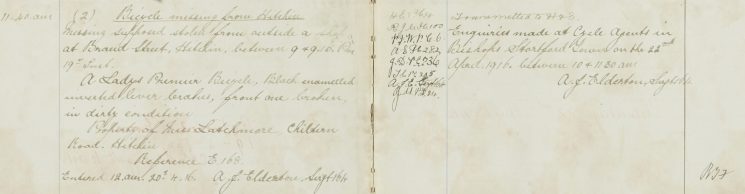 11-40 am (2) Bicycle missing from Hitchin
Missing supposed stolen from outside a shop
at Brand Street, Hitchin, between 9 & 9.10 Pm
19th Inst.
A Ladys Premier Bicycle, Black enamelled
inverted lever brakes, front one broken,
in dirty condition
Property of Miss Latchmore, Chiltern
Road. Hitchin
Reference E 168.
Entered 12 am. 20th 4.16. A. J. Elderton, Sergt 164
Transmitted to
Enquiries made at Cycle Agents in
Bishops Stortford Town on the 22nd
April 1916 between 10 & 11.20 am
A. J. Elderton, Sergt 164